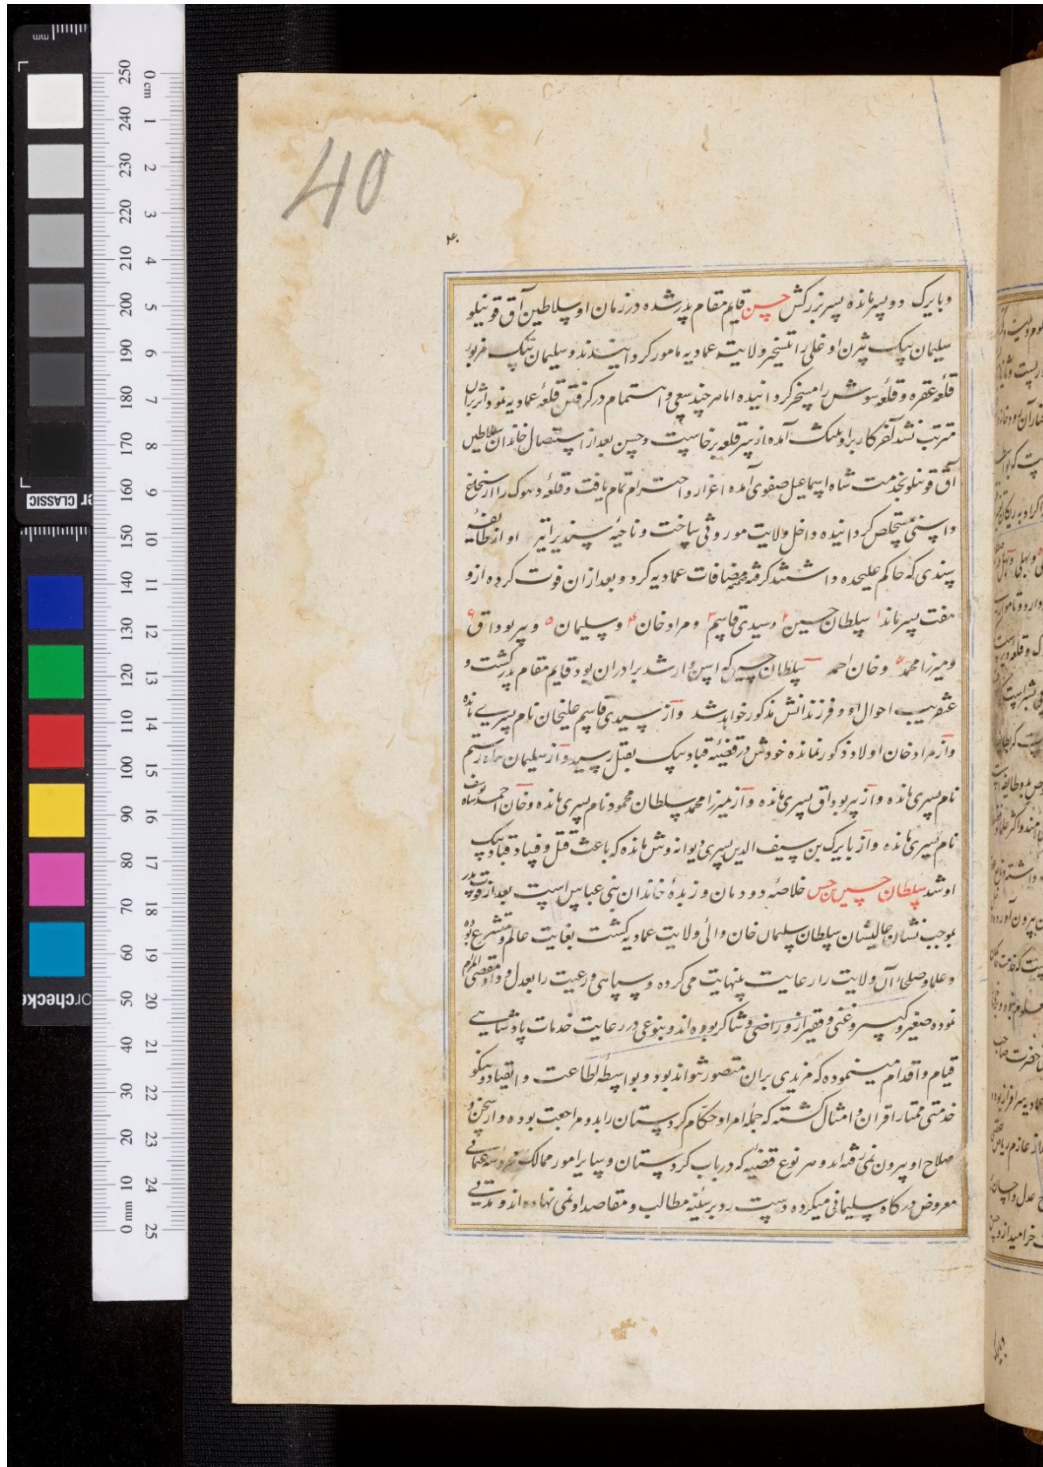 40
۴۰
و بایرک دو پسر مانده پسر بزرکش حسن قایم مقام پدر شده در زمان او سلاطین آق قوینلو
سلیمان بیک بیژن اوغلی را بتسخیر ولایت عمادیه مامور کردانیدند و سلیمان بیک مزبور
قلعهٔ عقره و قلعهٔ شوش را مسخر کردانیده اما هر چند سعی و اهتمام در کرفتن قلعهٔ عمادیه نمود اثر بران
مترتب نشد آخر کار برا و تنک آمده از سر قلعه برخاست و حسن بعد از استیصال خاندان سلاطین
آق قوینلو بخدمت شاه اسماعیل صفوی آمده اعزاز و احترام تمام یافت و قلعهٔ دهوک را از
داسنی مستخلص کردانیده داخل ولایت موروثی ساخت و ناحیهٔ سندی را نیز او از طایفهٔ
سندی که حاکم علیحده داشتند کرفته ضمیمه مضافات عمادیه کرد و بعد از ان فوت کرده از و
هفت پسر ماند سلطان حسین و سیدی قاسم و مراد خان و سلیمان و پیر بوداق
و میرزا محمد و خان احمد سلطان حسین که اسن و ارشد برادران بود قایم مقام پدر کشت و
عنقریب احوال او و فرزندانش مذکور خواهد شد و از سیدی قاسم علیخان نام پسری مانده
و از مراد خان اولاد ذکور نمانده خودش در قضیهٔ قباد بیک بقتل رسید و از سلیمان شاه رستم
نام پسری مانده و از پیر بوداق پسری مانده و از میرزا محمد سلطان محمود نام پسری مانده و خان احمد شاه یوسف
نام پسری مانده و از بایرک بن سیف الدین پسری دیوانه وش مانده که باعث قتل و فساد قباد بیک
او شد سلطان حسین بن حسن خلاصهٔ دودمان و زبدهٔ خاندان بنی عباس است بعد از فوت پدر
بموجب نشان عالیشان سلطان سلیمان خان والی ولایت عمادیه کشت بغایت عالم و متشرع بوده
و علما و صلحای آن ولایت را رعایت بینهایت می کرده و سپاهی و رعیت را بعدل و داد
نموده صغیر و کبیر و غنی و فقیر از و راضی و شاکر بوده اند و بنوعی در رعایت خدمات پادشاهی
قیام و اقدام مینموده که مزیدی بران متصور نتواند بود و بواسطهٔ اطاعت و انقیاد و نیکو
خدمتی ممتاز اقران و امثال کشته که جمله امرا و حکام کردستان را بدو مراجعت بوده و از سخن و
صلاح او بیرون نمی رفته اند و هر نوع قضیهٔ که در باب کردستان و سایر امور ممالک محروسه عثمانی
معروض درکاه سلیمانی میکرده دست رد بر سینه مطالب و مقاصد او نمی نهاده اند و مدتی